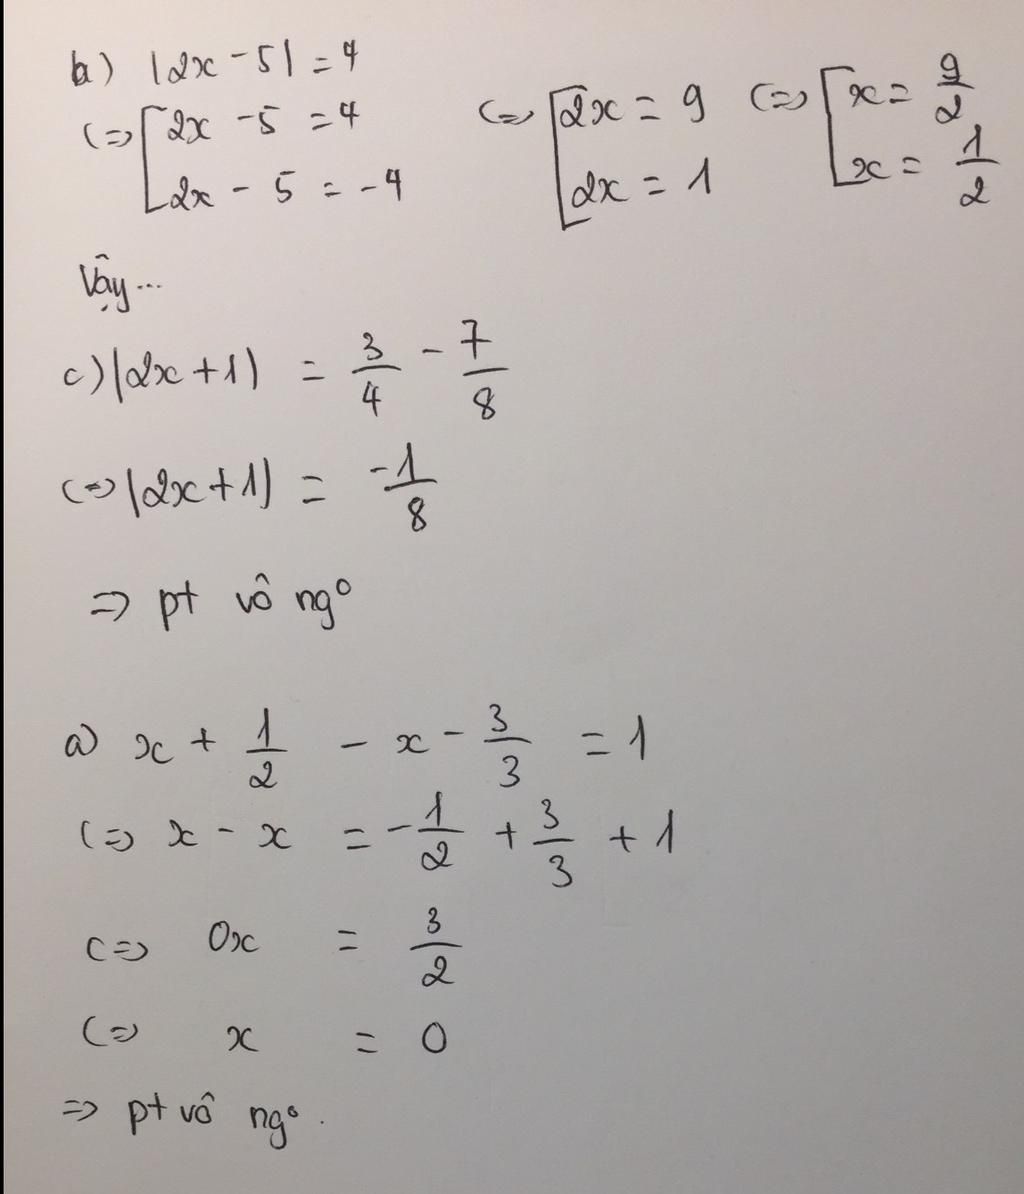 b) |2x - 5| = 4
(=> [2x - 5 = 4 (=> [2x = 9 (=> [x = 9/2
[2x - 5 = -4 [2x = 1 [x = 1/2
Vậy...
c) |2x + 1) = 3/4 - 7/8
(=> |2x + 1) = -1/8
=> pt vô ng°
a) x + 1/2 - x - 3/3 = 1
(=> x - x = -1/2 + 3/3 + 1
(=> 0x = 3/2
(=> x = 0
=> pt vô ng°.